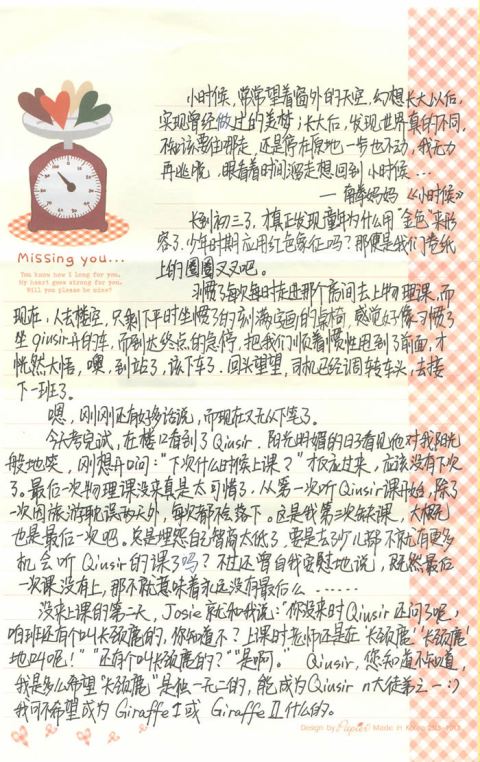 小时候,常常望着窗外的天空,幻想长大以后,
实现曾经做过的美梦;长大后,发现世界真的不同,
不知该要往哪走,还是停在原地一步也不动,我无力
再逃脱,眼看着时间溜走想回到小时候…
— 自闭妈妈《小时候》
长到初三了,才真正发现童年为什么用“金色”来形
容了.少年时期应用红色象征吗?那便是我们卷纸
上的圈圈叉叉吧。
Missing you...
You know how I long for you.
My heart goes strong for you.
Will you please be mine?
习惯了每次每时走进那个房间去上物理课,而
现在,人去楼空,只剩下平时坐惯了的刻满字画的桌椅,感觉好像习惯了
坐qiusir开的车,而到达终点的急停,把我们顺着惯性甩到了前面,才
恍然大悟,噢,到站了,该下车了.回头望望,司机已经调转车头,去接
下一班了.
嗯,刚刚还有好多话说,而现在又无从下笔了。
今天考完试,在楼口看到了Qiusir.阳光明媚的日子看见他对我阳光
般地笑,刚想开口问:“下次什么时候上课?”才反应过来,应该没有下次
了。最后一次物理课没来真是太可惜了.从第一次听Qiusir课开始,除了
一次因旅游耽误以外,每次都不会落下。这是我第二次缺课,大概
也是最后一次吧。总是埋怨自己智商太低了,要是去了少儿部不就有更多
机会听Qiusir的课了吗?不过还曾自我安慰地说,既然最后
一次课没有上,那不就意味着永远没有最后么……
没来上课的第二天,Josie就和我说:“你没来时Qiusir还问了呢,
咱班还有个叫长颈鹿的,你知道不?上课时老师还是在‘长颈鹿’‘长颈鹿’
地叫呢!”“还有个叫长颈鹿的?”“是啊。” Qiusir,您知道不知道,
我是多么希望“长颈鹿”是独一无二的,能成为Qiusir n大徒弟之一:)
我可不希望成为Giraffe I或Giraffe II什么的。
Design by Paperie Made in Korea